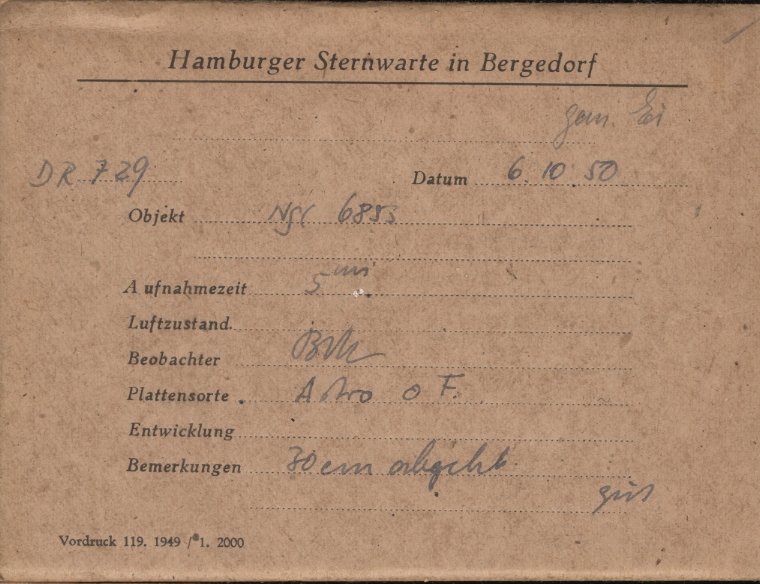 Hamburger Sternwarte in Bergedorf
gem. Ei
DR 729 Datum 6. 10. 50
Objekt 
Aufnahmezeit 5 min
Luftzustand.
Beobachter
Plattensorte . Astro o F.
Entwicklung
Bemerkungen 30cm abgebl
gut
Vordruck 119. 1949 / 1. 2000